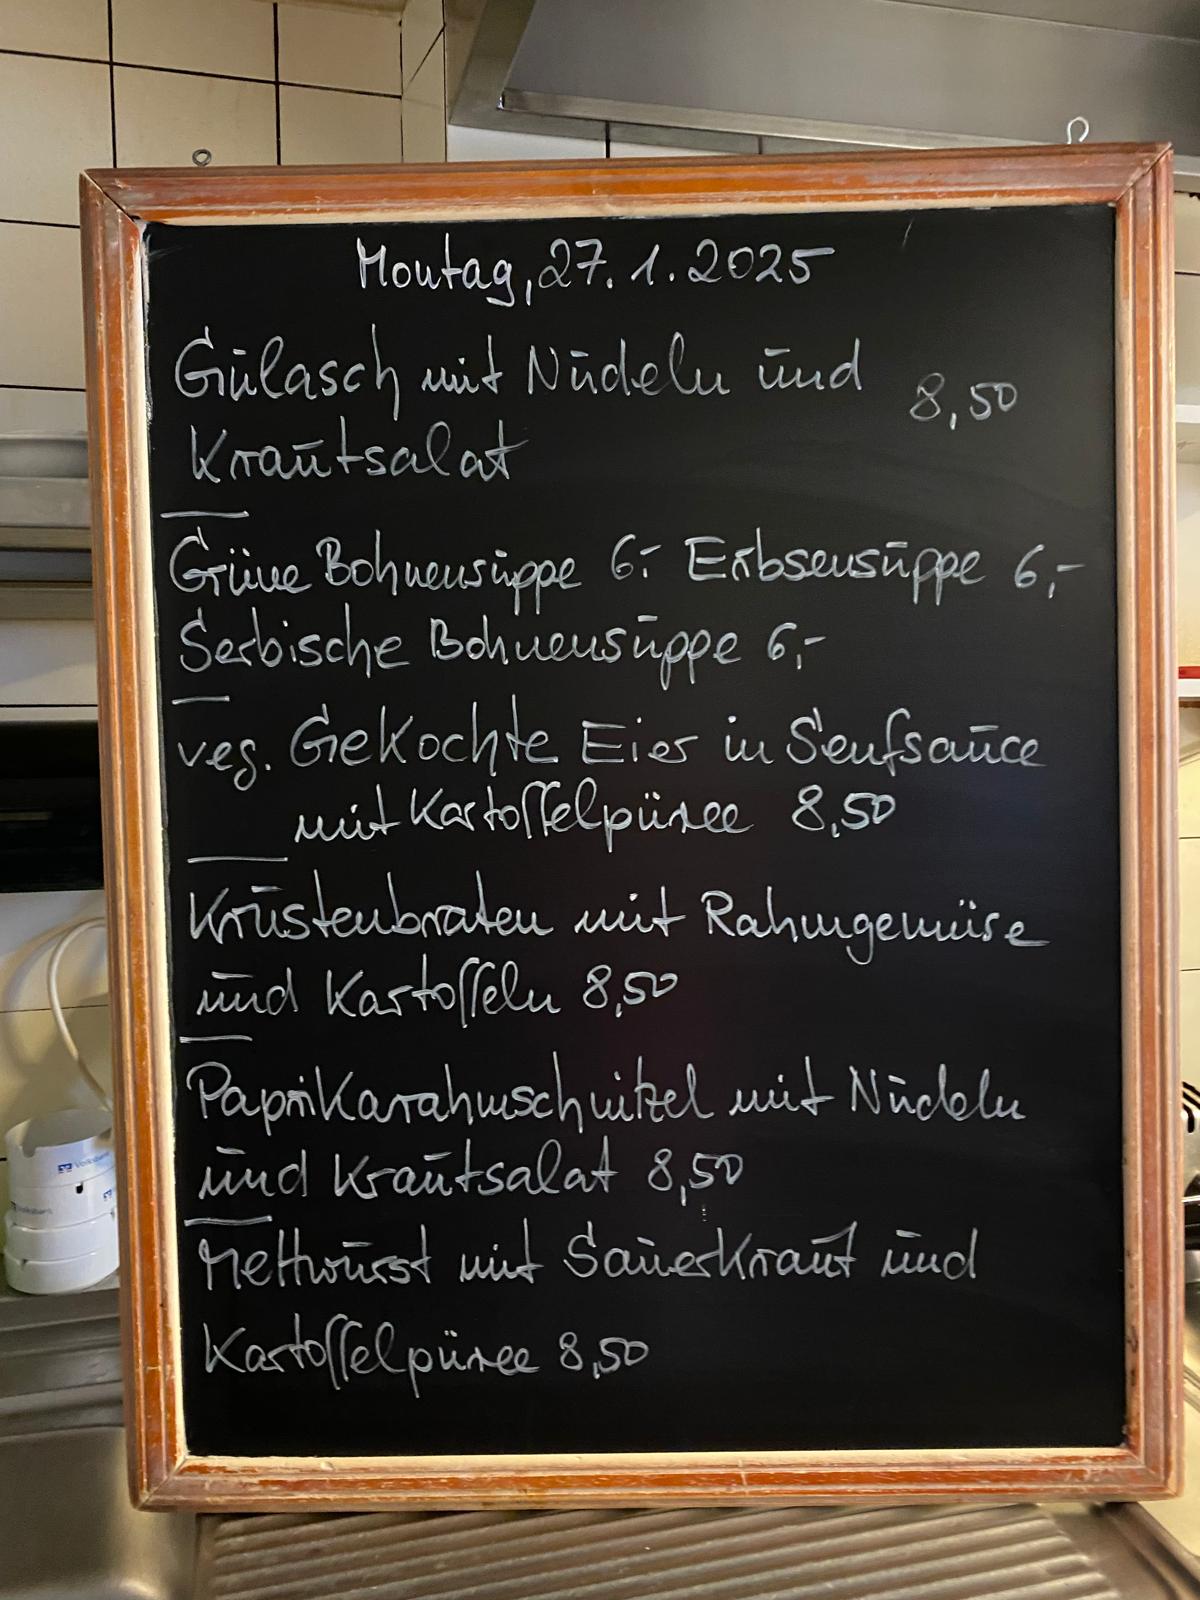 Montag, 27.1.2025
Gulasch mit Nudeln und 8,50
Krautsalat
Grüne Bohnensuppe 6,- Erbsensuppe 6,-
Serbische Bohnensuppe 6,-
veg. Gekochte Eier in Senfsauce
mit Kartoffelpüree 8,50
Krustenbraten mit Rahmgemüse
und Kartoffeln 8,50
Paprikarahmschnitzel mit Nudeln
und Krautsalat 8,50
Mettwurst mit Sauerkraut und
Kartoffelpüree 8,50
Volksbank
Volksbank